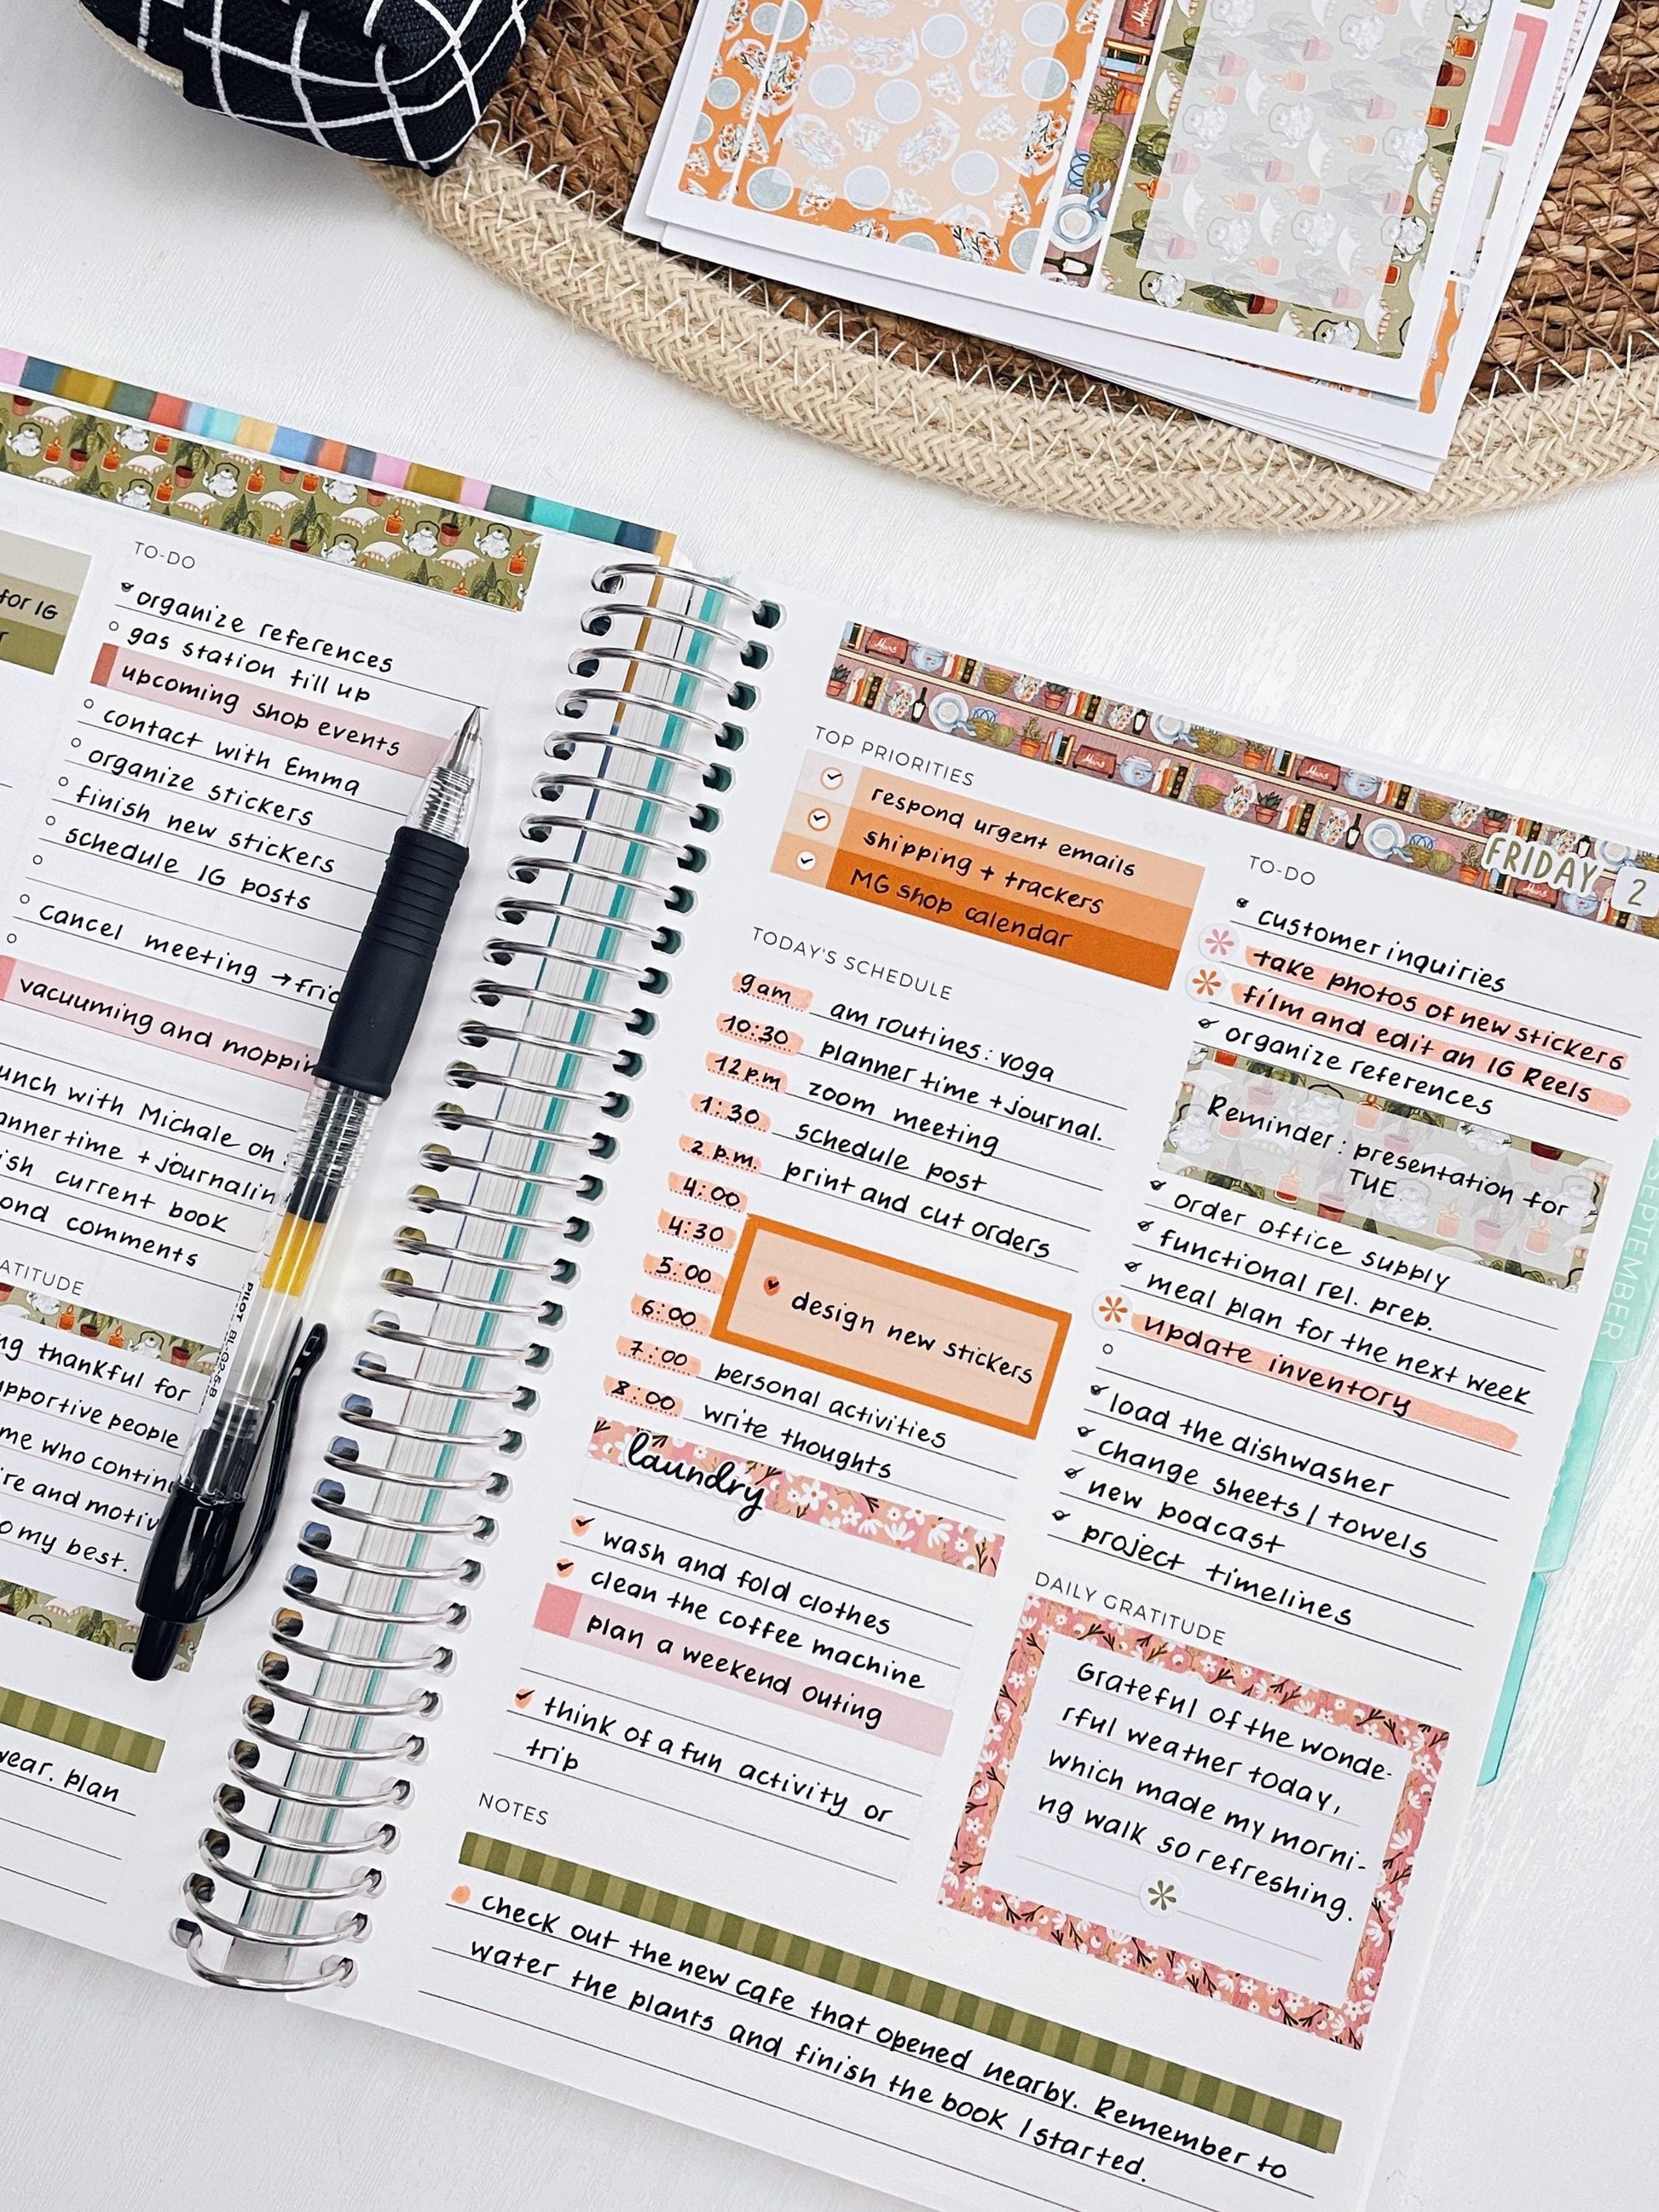 for IG
TO-DO
organize references
gas station fill up
upcoming shop events
contact with Emma
organize stickers
finish new stickers
schedule IG posts
cancel meeting →fri
vacuuming and moppin
unch with Michale on
anner time + journalin
ish current book
ond comments
ATITUDE
ng thankful for
pportive people
me who contin
re and motiv
o my best.
wear. plan
PILOT BL-G2-5-B
TOP PRIORITIES
respond urgent emails
shipping + trackers
MG shop calendar
TODAY'S SCHEDULE
9am am routines: yoga
10:30 planner time + journal.
12p.m zoom meeting
1:30 schedule post
2 p.m. print and cut orders
4:00
4:30
5:00 design new stickers
6:00
7:00 personal activities
8:00 write thoughts
laundry
wash and fold clothes
clean the coffee machine
plan a weekend outing
think of a fun activity or
trip
FRIDAY 2
TO-DO
customer inquiries
take photos of new stickers
film and edit an IG Reels
organize references
Reminder: presentation for
TUE
order office supply
functional rel. prep.
meal plan for the next week
update inventory
load the dishwasher
change sheets / towels
new podcast
project timelines
DAILY GRATITUDE
Grateful of the wonde-
rful weather today,
which made my morni-
ng walk so refreshing.
NOTES
check out the new cafe that opened nearby. Remember to
water the plants and finish the book I started.
SEPTEMBER